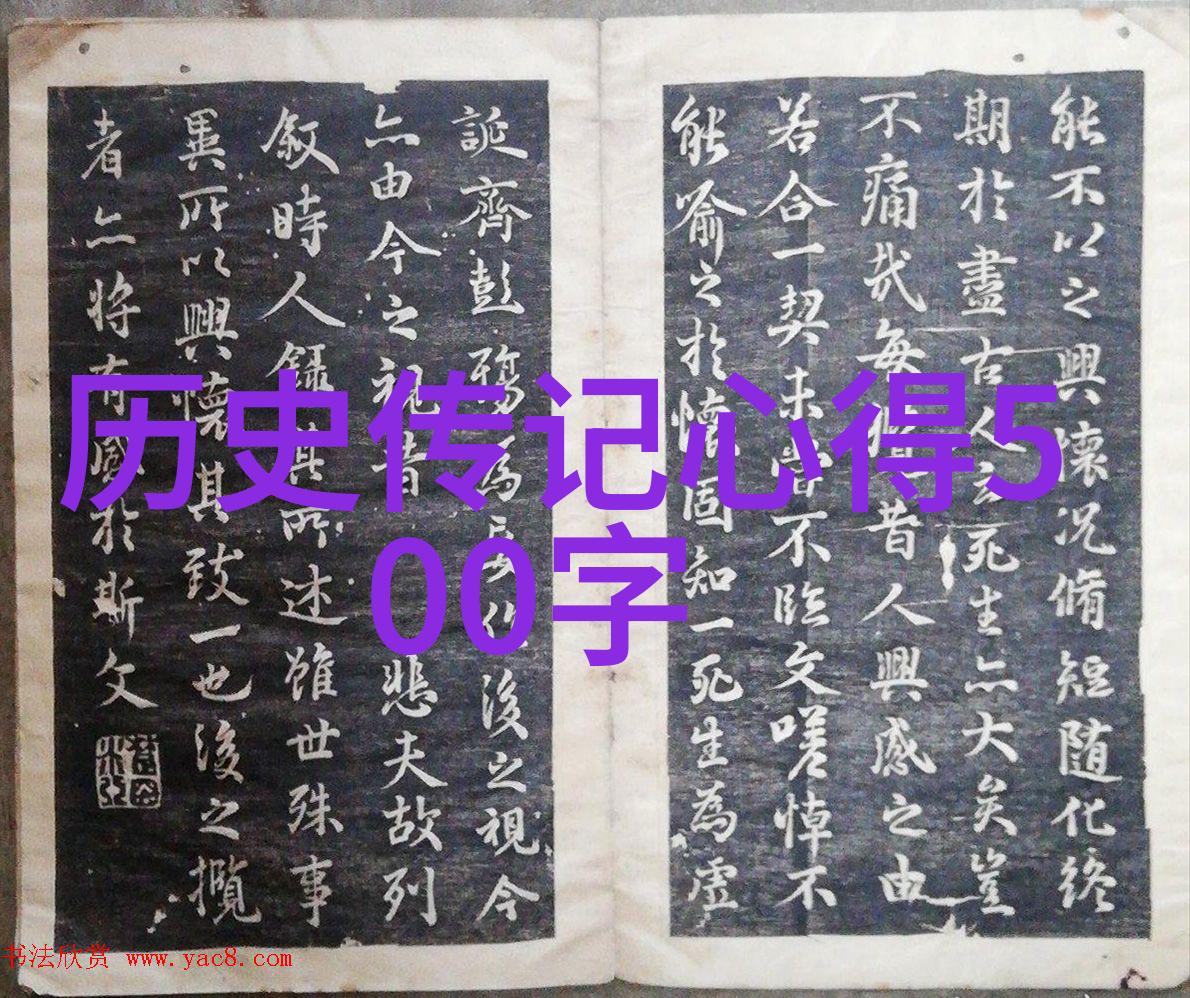 历史传记心得5
00字
能不以之興懷況脩短随化終
期於盡古人云死生亦大矣豈
不痛哉每攬昔人興感之由
若合一契未嘗不臨文嗟悼不
能喻之於懷固知一死生為虛
誕齊彭殤為妄作後之視今
亦由今之視昔悲夫故列
叙時人録其所述雖世殊事
異所以興懷其致一也後之攬
者亦将有感於斯文
书法欣赏 www.yac8.com